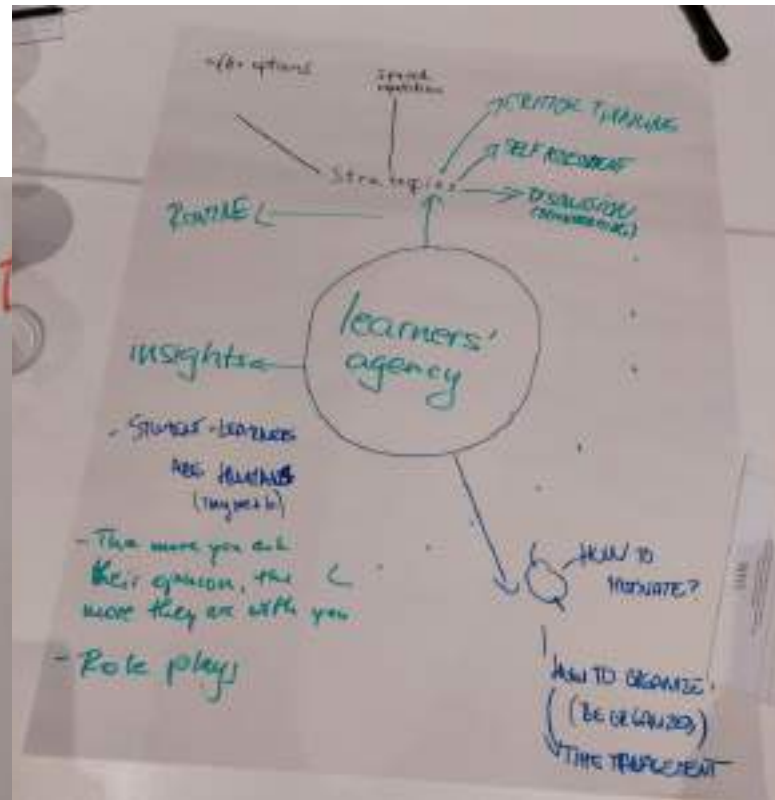 offer options
spaced
repetition
CRITICAL THINKING
SELF ASSESSMENT
Strategies
DISCUSSION
ROUTINE
learners'
agency
insights
- STUDENT-LEARNERS
ARE HUMANS
- The more you ask
their opinion, the
more they are with you
- Role plays
Q
HOW TO
MOTIVATE?
HOW TO ORGANIZE
(BE ORGANIZED)
TIME MANAGEMENT